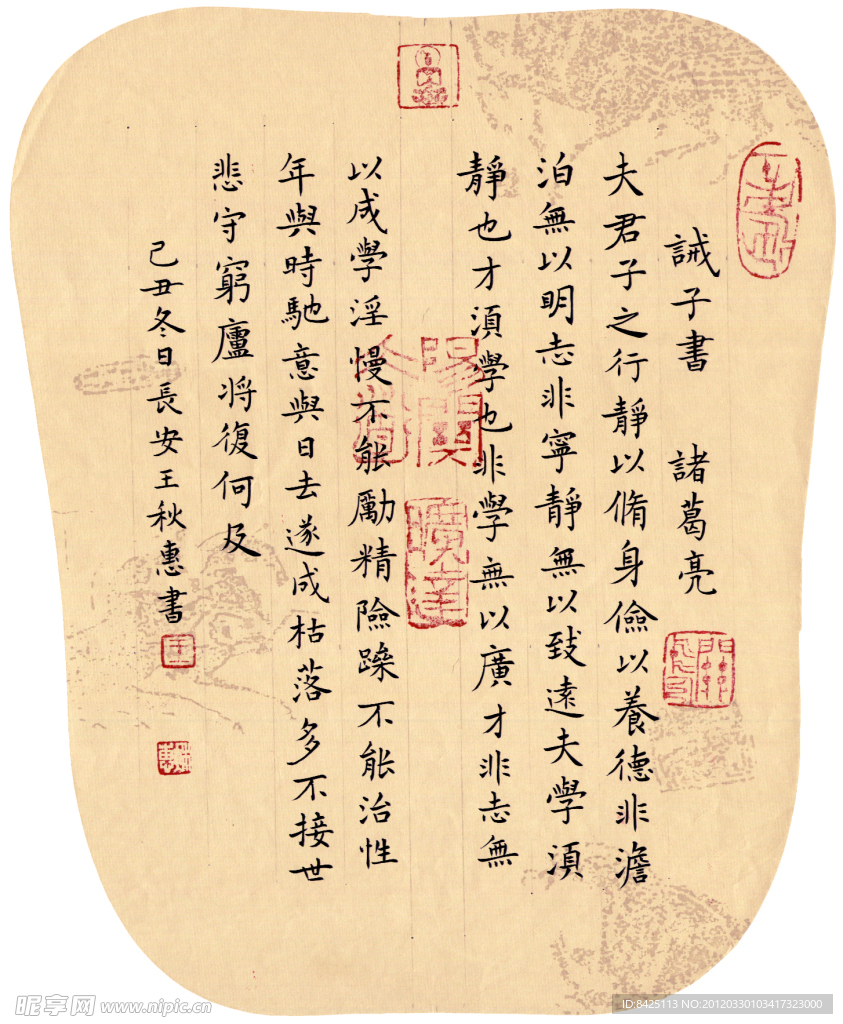 誡子書 諸葛亮
夫君子之行靜以脩身儉以養德非澹
泊無以明志非寧靜無以致遠夫學須
靜也才須學也非學無以廣才非志無
以成學淫慢不能勵精險躁不能治性
年與時馳意與日去遂成枯落多不接世
悲守窮廬將復何及
己丑冬日長安王秋惠書
曠達
王
昵享网 www.nipic.cn
ID:8425113 NO:20120330103417323000